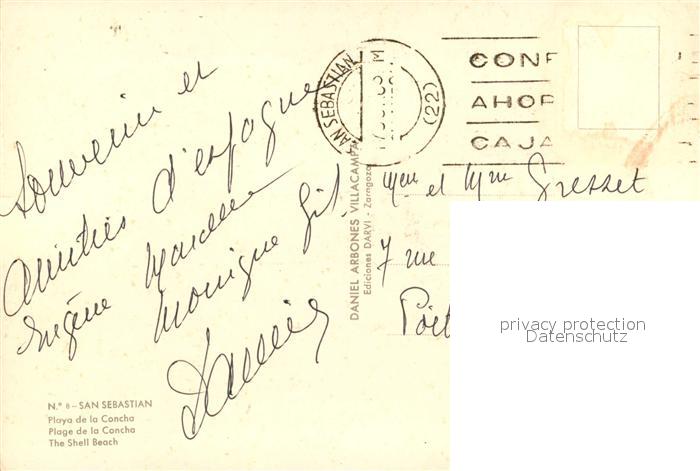 Souvenir et
Amitiés d'espagne
Eugène Marcelle
Monique Gil.
N.º 8 - SAN SEBASTIAN
Playa de la Concha
Plage de la Concha
The Shell Beach
DANIEL ARBONES VILLACAMPA
Ediciones DARVI - Zaragoza
SAN SEBASTIAN
(22)
CONF
AHOR
CAJA
et Mme Gresset
7 rue
privacy protection
Datenschutz